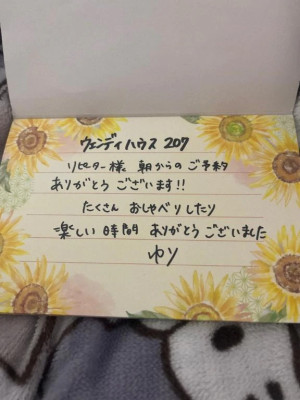 ウェンディハウス 207
リピーター様 朝からのご予約
ありがとうございます!!
たくさん おしゃべりしたり
楽しい時間 ありがとうございました
ゆり